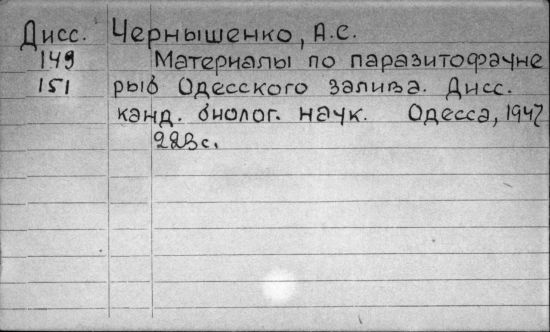 Дисс. Чернышенко, А.С.
149 Материалы по паразитофауне
151 рыб Одесского залива. Дисс.
канд. биолог. наук. Одесса, 1947
223с.